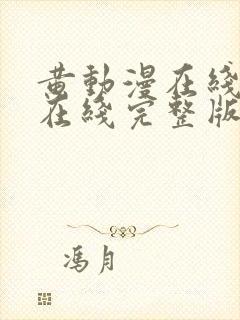 黄動漫在綫
在綫完整版
馮月